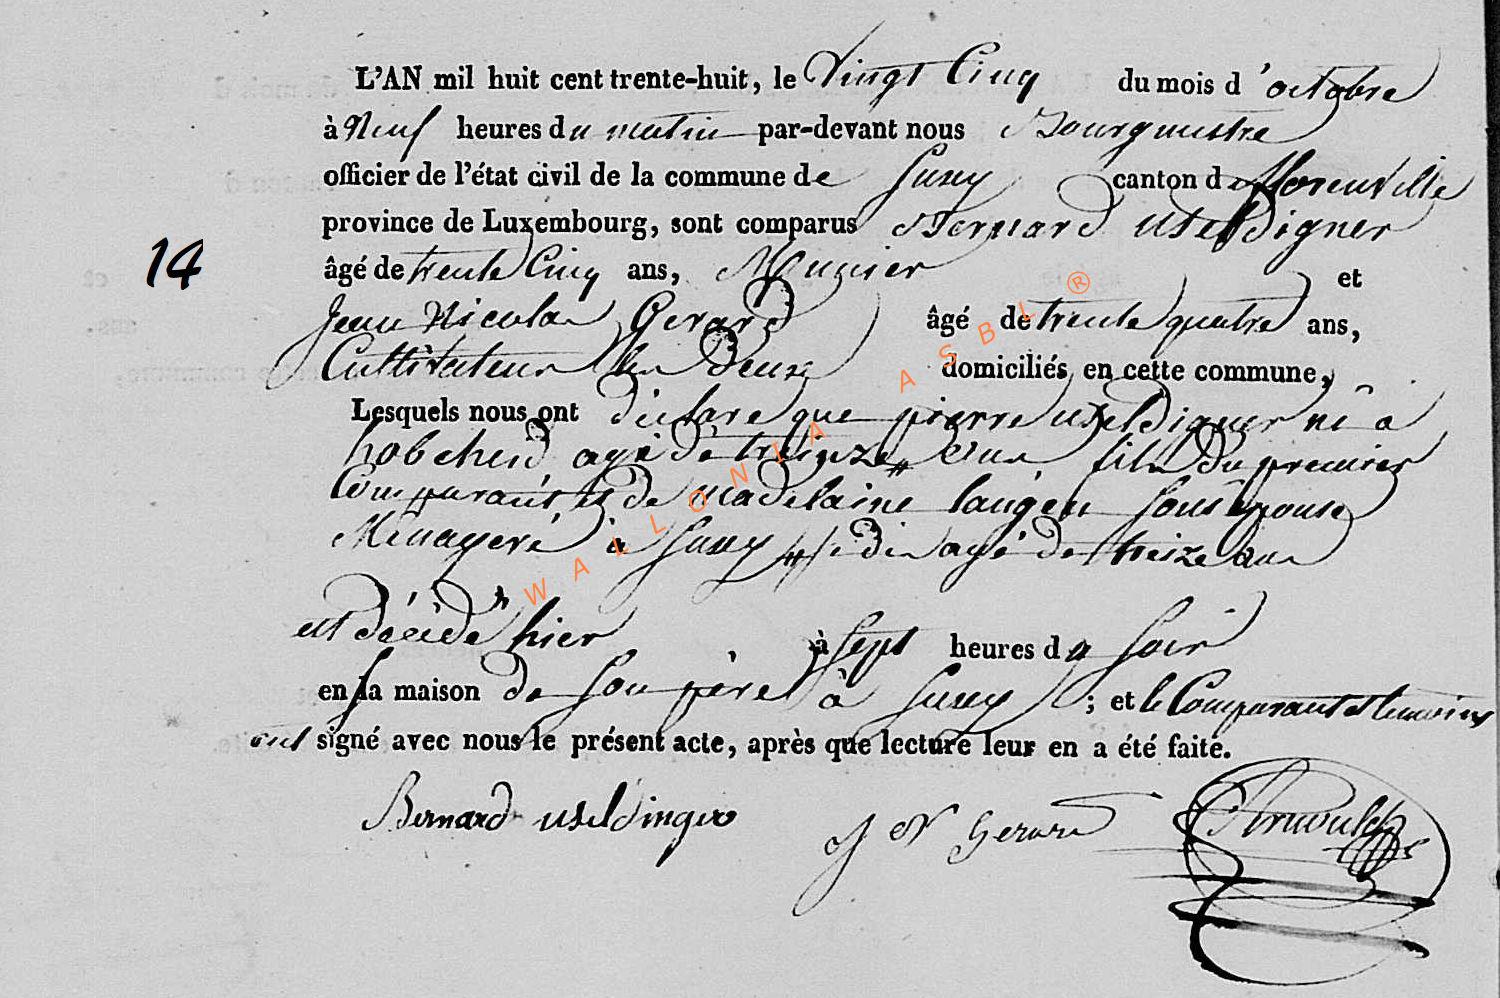 L'AN mil huit cent trente-huit, le Vingt Cinq du mois d'octobre
à Neuf heures du matin par-devant nous Bourgmestre
officier de l'état civil de la commune de Suxy canton de florenville
province de Luxembourg, sont comparus Bernard Useldigner
14
âgé de trente Cinq ans, Munier et
Jean Nicolas Gerard âgé de trente quatre ans,
Cultivateur les Deux domiciliés en cette commune,
Lesquels nous ont déclaré que pierre useldigner né a
hobscheid agé de treize ans, fils du premier
Comparant et de madelaine sous épouse
Ménagere à Suxy agé de treize ans
est décédé hier à Sept heures du Soir
en la maison de Son père à Suxy ; et le Comparant et temoins
ont signé avec nous le présent acte, après que lecture leur en a été faite.
Bernard useldinger J N Gerard Arnould
WALLONIA ASBL ®